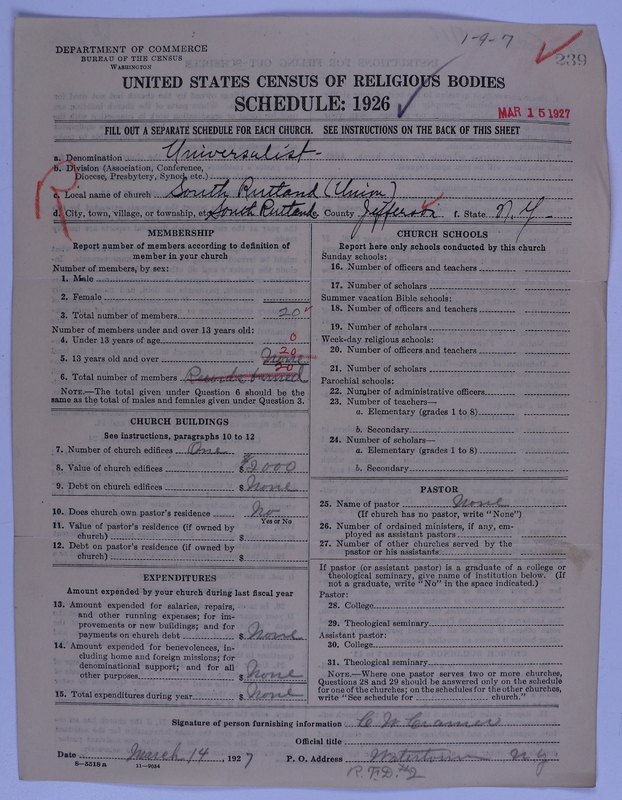 1-9-7
239
DEPARTMENT OF COMMERCE
BUREAU OF THE CENSUS
WASHINGTON
UNITED STATES CENSUS OF RELIGIOUS BODIES
SCHEDULE: 1926
MAR 15 1927
FILL OUT A SEPARATE SCHEDULE FOR EACH CHURCH. SEE INSTRUCTIONS ON THE BACK OF THIS SHEET
a. Denomination Universalist
b. Division (Association, Conference,
Diocese, Presbytery, Synod, etc.)
c. Local name of church South Rutland (Union)
d. City, town, village, or township, etc. South Rutland County Jefferson f. State N. Y.
R
MEMBERSHIP
Report number of members according to definition of
member in your church
Number of members, by sex:
1. Male
2. Female
3. Total number of members 20
Number of members under and over 13 years old:
4. Under 13 years of age 0
5. 13 years old and over None 20
6. Total number of members Records burned 20
NOTE.—The total given under Question 6 should be the
same as the total of males and females given under Question 3.
CHURCH BUILDINGS
See instructions, paragraphs 10 to 12
7. Number of church edifices One
8. Value of church edifices $ $2000
9. Debt on church edifices $ None
10. Does church own pastor's residence No
Yes or No
11. Value of pastor's residence (if owned by
church) $
12. Debt on pastor's residence (if owned by
church) $
EXPENDITURES
Amount expended by your church during last fiscal year
13. Amount expended for salaries, repairs,
and other running expenses; for im-
provements or new buildings; and for
payments on church debt $ None
14. Amount expended for benevolences, in-
cluding home and foreign missions; for
denominational support; and for all
other purposes $ None
15. Total expenditures during year $ None
CHURCH SCHOOLS
Report here only schools conducted by this church
Sunday schools:
16. Number of officers and teachers
17. Number of scholars
Summer vacation Bible schools:
18. Number of officers and teachers
19. Number of scholars
Week-day religious schools:
20. Number of officers and teachers
21. Number of scholars
Parochial schools:
22. Number of administrative officers
23. Number of teachers—
a. Elementary (grades 1 to 8)
b. Secondary
24. Number of scholars—
a. Elementary (grades 1 to 8)
b. Secondary
PASTOR
25. Name of pastor None
(If church has no pastor, write "None")
26. Number of ordained ministers, if any, em-
ployed as assistant pastors
27. Number of other churches served by the
pastor or his assistants
If pastor (or assistant pastor) is a graduate of a college or
theological seminary, give name of institution below. (If
not a graduate, write "No" in the space indicated.)
Pastor:
28. College
29. Theological seminary
Assistant pastor:
30. College
31. Theological seminary
NOTE.—Where one pastor serves two or more churches,
Questions 28 and 29 should be answered only on the schedule
for one of the churches; on the schedules for the other churches,
write "See schedule for church."
Signature of person furnishing information C. W. Cramer
Official title
Date March 14 1927 P. O. Address Watertown N. Y.
8-5518 a 11-9054 R.F.D. #2